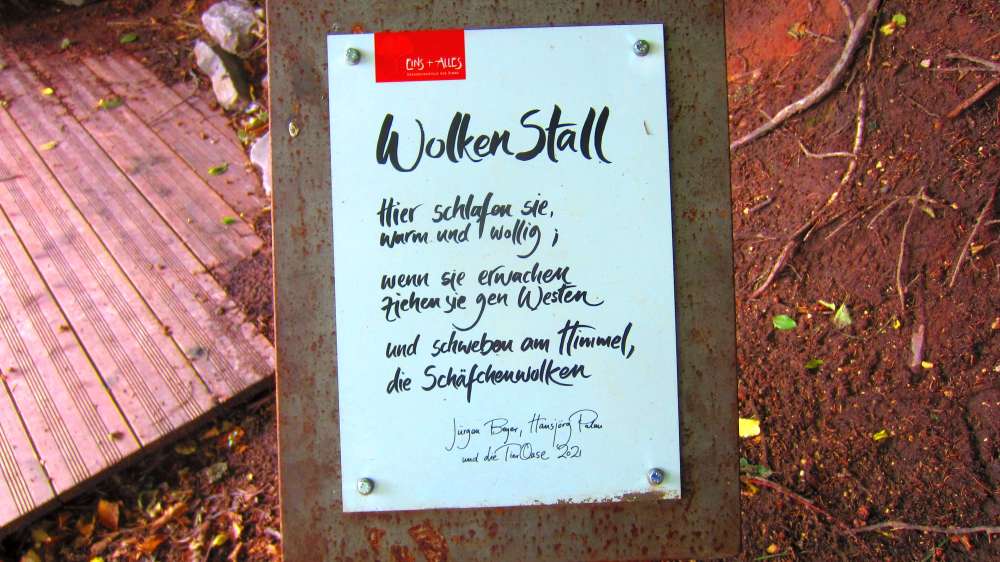 EINS + ALLES
ERFAHRUNGSFELD DER SINNE
WolkenStall
Hier schlafen sie,
warm und wollig ;
wenn sie erwachen
ziehen sie gen Westen
und schweben am Himmel,
die Schäfchenwolken
Jürgen Beyer, Hansjörg Palm
und die TierOase 2021